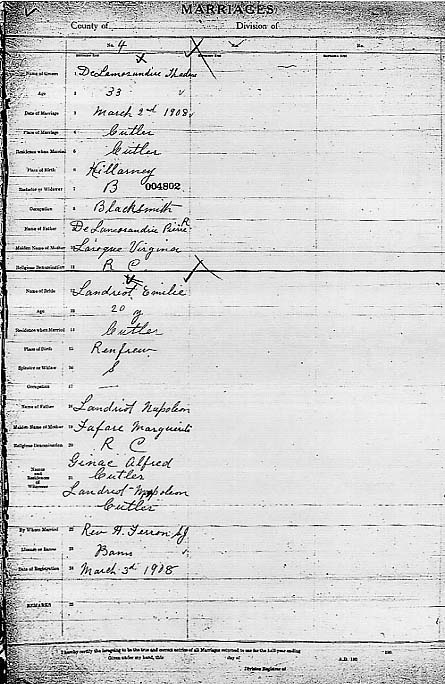 MARRIAGES
County of Division of
No. 4 No. No.
Name of Groom 1 DeLamorandiere Thadeus
Age 2 33
Date of Marriage 3 March 2nd 1908
Place of Marriage 4 Cutler
Residence when Married 5 Cutler
Place of Birth 6 Killarney
Bachelor or Widower 7 B 004802
Occupation 8 Blacksmith
Name of Father 9 De Lamorandiere Pierre R
Maiden Name of Mother 10 Laroque Virginia
Religious Denomination 11 R C
Name of Bride 12 Landriot Emilie
Age 13 20 y
Residence when Married 14 Cutler
Place of Birth 15 Renfrew
Spinster or Widow 16 S
Occupation 17 —
Name of Father 18 Landriot Napoleon
Maiden Name of Mother 19 Fafare Marguerite
Religious Denomination 20 R C
Names and Residences of Witnesses 21 Ginac Alfred
Cutler
Landriot Napoleon
Cutler
By Whom Married 22 Rev A. Ferron S.J.
License or Banns 23 Banns
Date of Registration 24 March 3rd 1908
REMARKS 25
I hereby certify the foregoing to be the true and correct entries of all Marriages returned to me for the half-year ending 190
Given under my hand, this day of A.D. 190
Division Registrar of